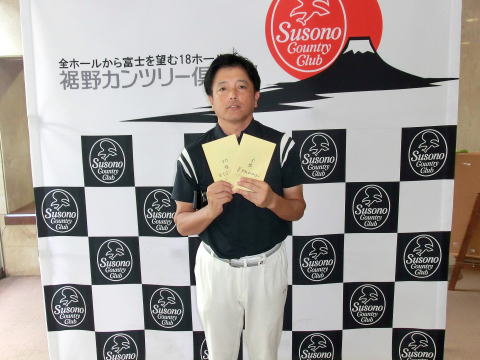 Susono
Country
Club
全ホールから富士を望む18ホール
裾野カンツリー倶
Susono
Country Club
Susono
Country Club
Susono
Country Club
Susono
Country Club
Susono
Country Club
Susono
Country Club
Susono
Country Club
Susono
Country Club
Susono
Country Club
Susono
Country Club
Susono
Country Club
Susono
Country Club
Susono
Country Club
Susono
Country Club
Susono
Country Club